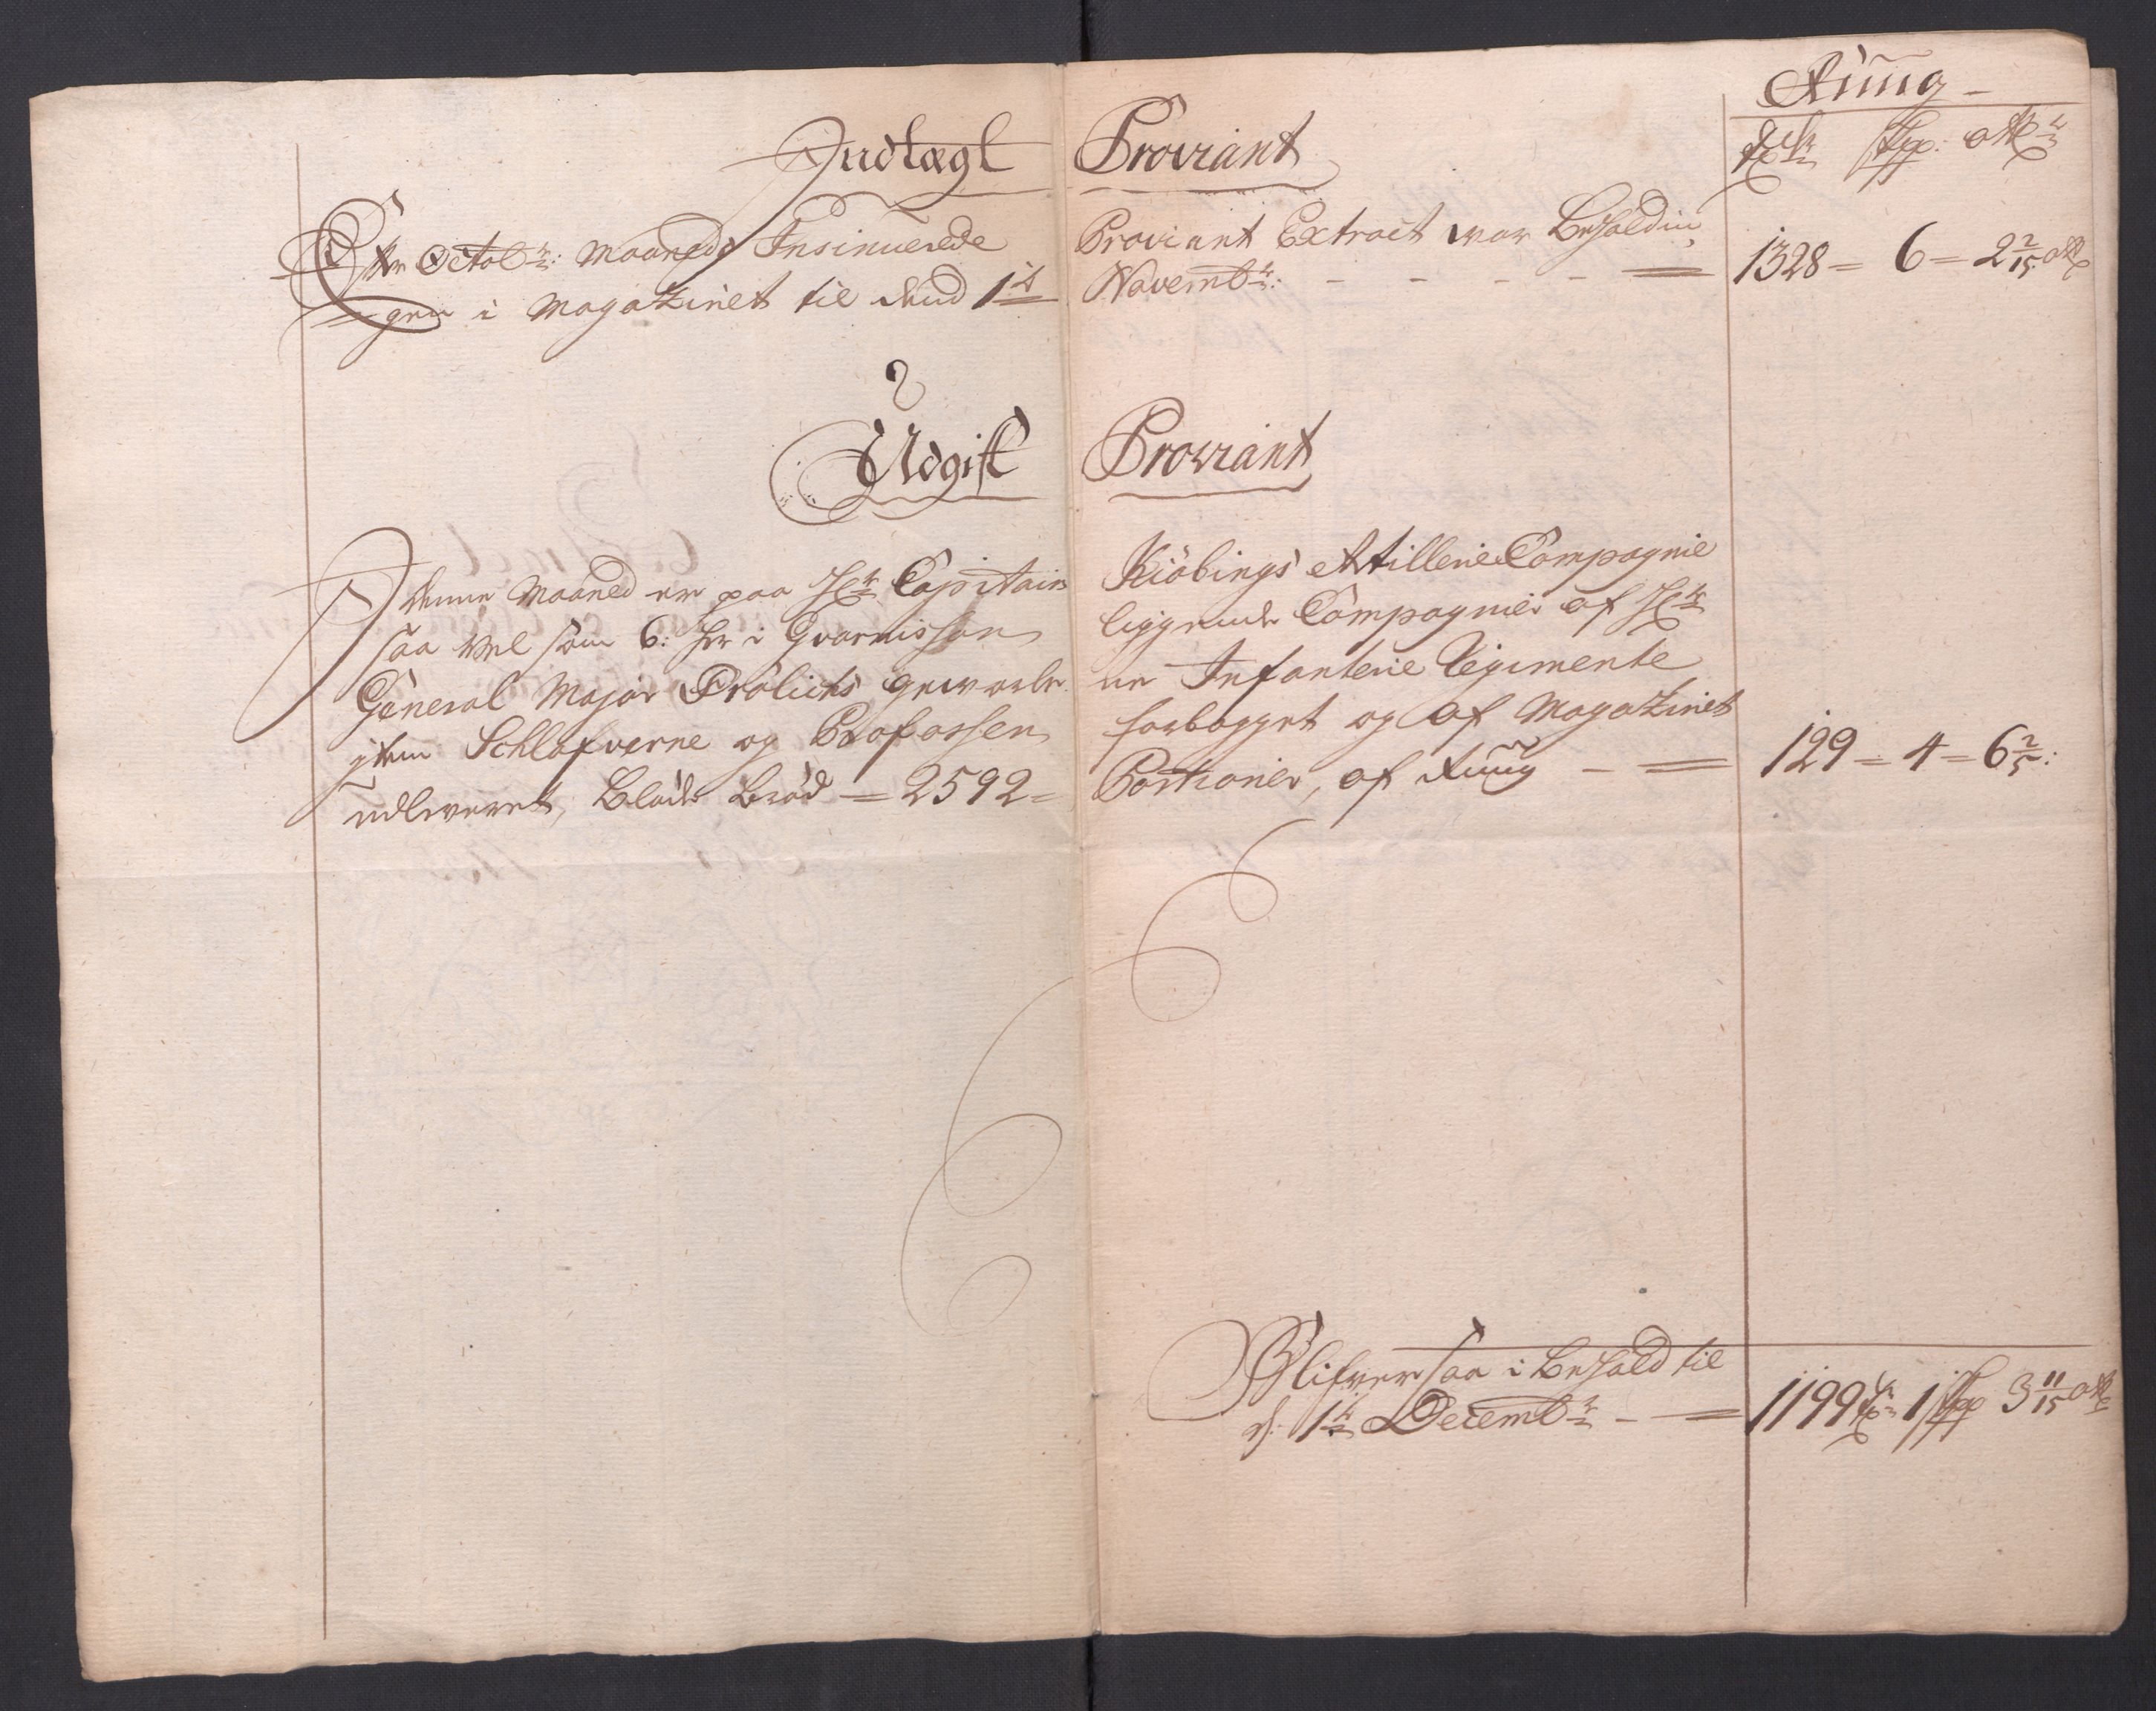 Ruug
Tdr Skp: ottr
Indtægt Proviant
Efter Octobr: Maaneds Insinuerede Proviant Extract war Beholdin
gen i Magazinet til dend 1te Novembr: 1328 = 6 = 2 2/15 ott
Udgift Proviant
I denne Maaned er paa Hr Capitain Kiöbings Artillerie Compagnie
saa vel som 6: her i Gvarnisson liggende Compagnier af Hr
General Major Frölichs gevorbe ne Infanterie Regimente
item Schlafverne og Profossen forbagget og af Magazinet
udleveret, Blödt Bröd = 2592 = Portioner, af Ruug 129 = 4 = 6 2/5:
Blifver saa i Behold til
d: 1te Decembr 1199 Tr 1 Skp 3 11/15 ott